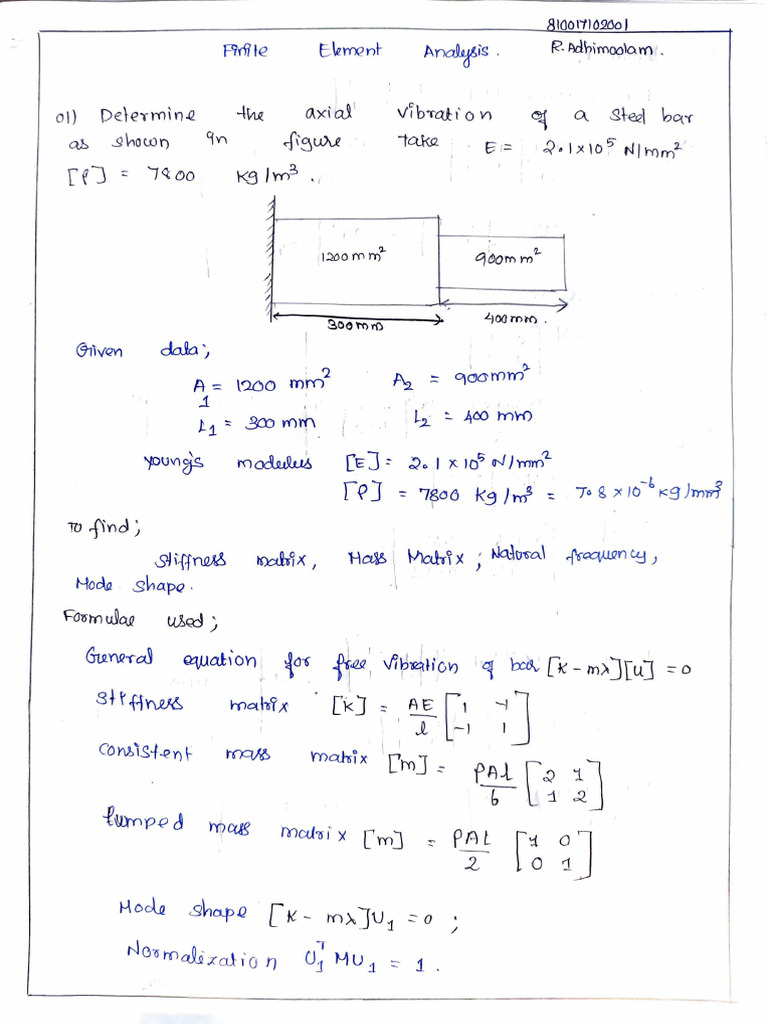 810017102001
Finite Element Analysis. R. Adhimoolam.
01) Determine the axial vibration of a steel bar
as shown in figure take E = 2.1×10⁵ N/mm²
[ρ] = 7800 kg/m³.
1200 mm² 900mm²
300mm 400mm.
Given data;
A₁ = 1200 mm² A₂ = 900mm²
L₁ = 300 mm L₂ = 400 mm
Young's modulus [E] = 2.1 × 10⁵ N/mm²
[ρ] = 7800 kg/m³ = 7.8 × 10⁻⁶ kg/mm³
To find;
Stiffness matrix, Mass Matrix; Natural frequency,
Mode shape.
Formulae used;
General equation for free vibration of bar [K - mλ][u] = 0
Stiffness matrix [K] = AE/l [1 -1; -1 1]
Consistent mass matrix [m] = ρAl/6 [2 1; 1 2]
Lumped mass matrix [m] = ρAL/2 [1 0; 0 1]
Mode shape [K - mλ]U₁ = 0;
Normalization U₁ᵀ MU₁ = 1.